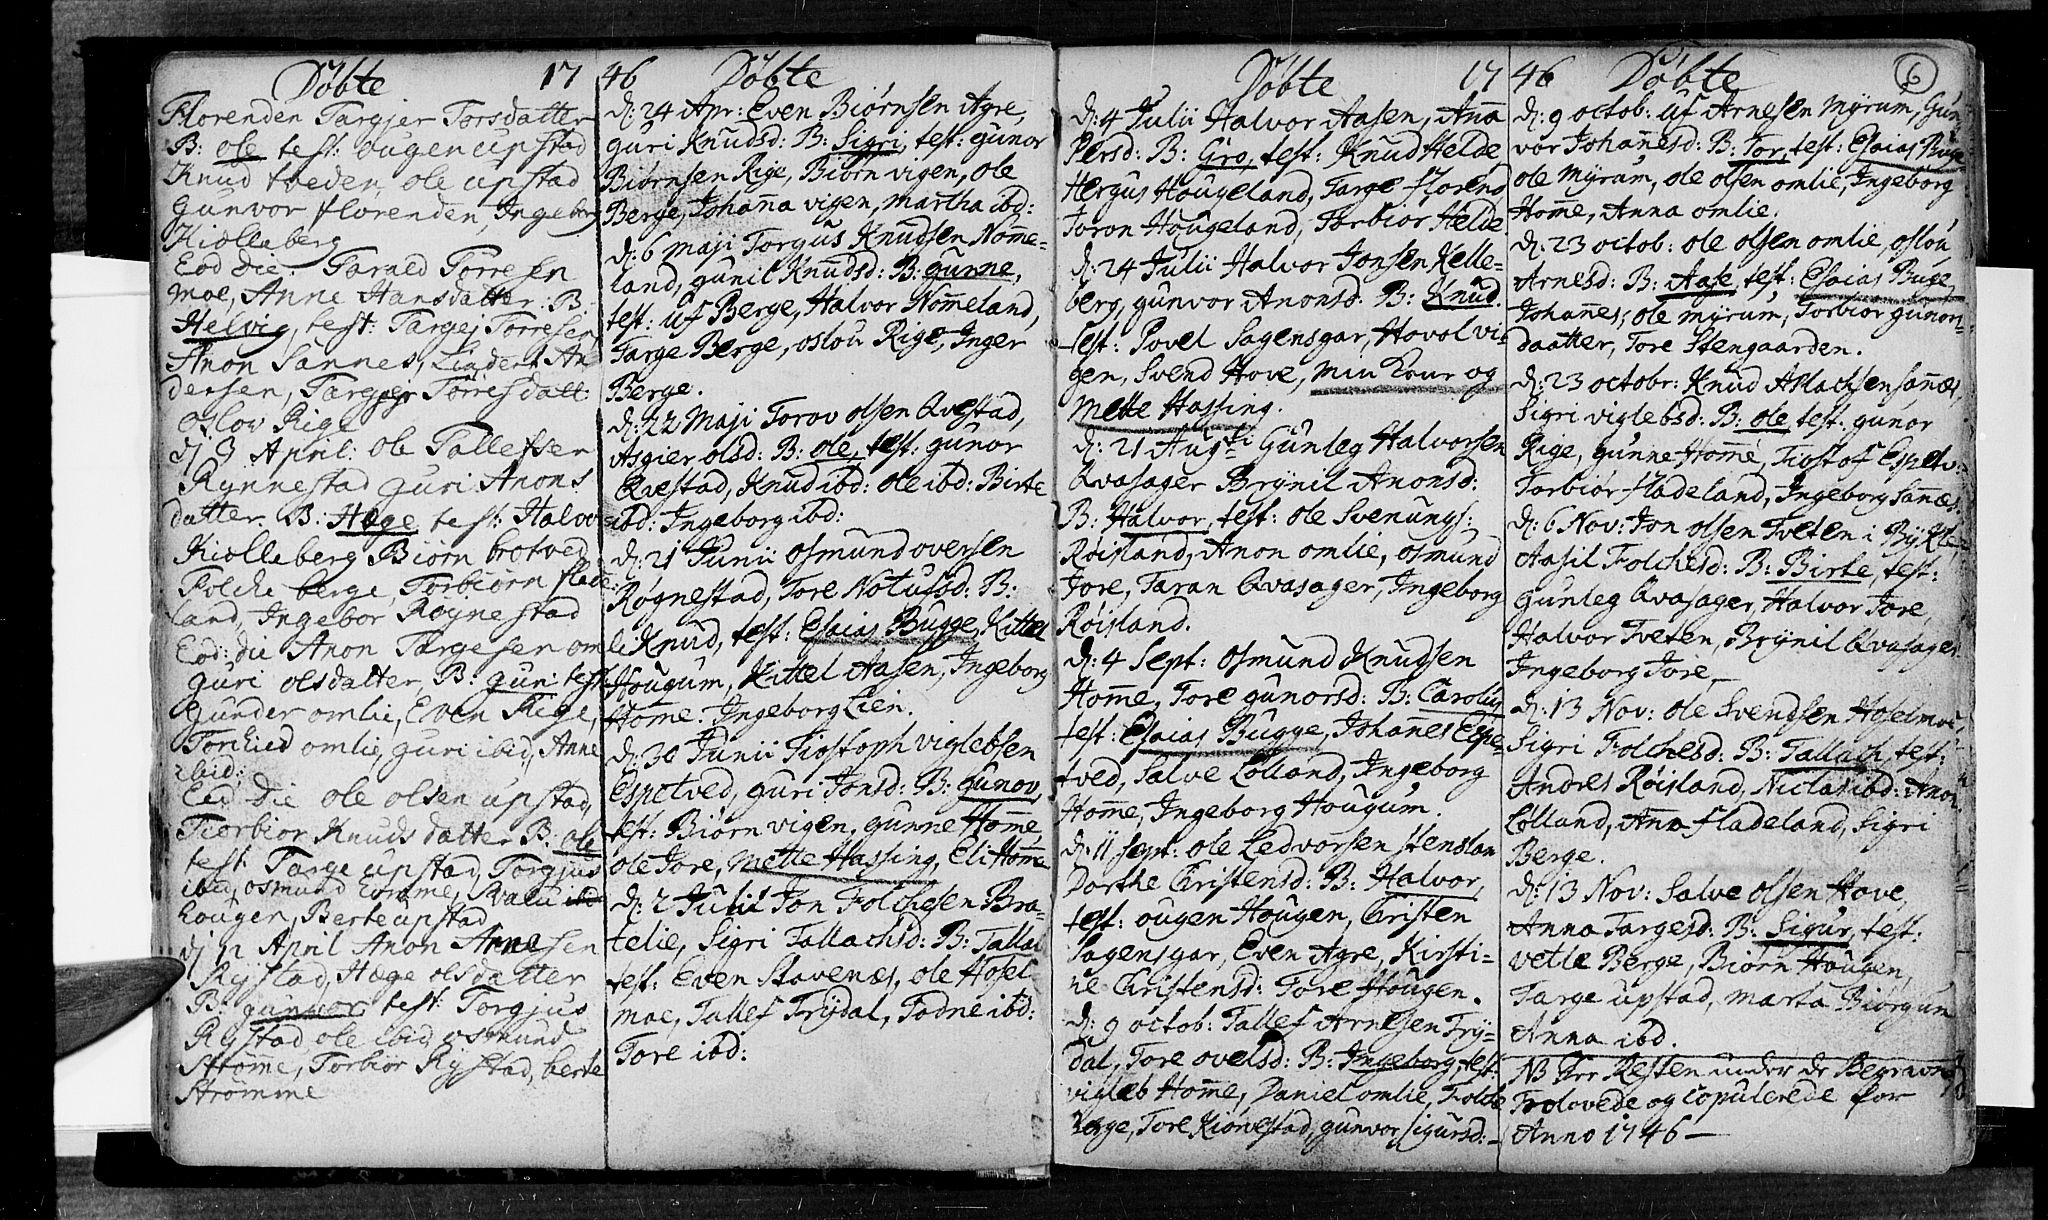 Døbte 17
Florenden Targjer Torsdatter
B: ole test: ougen upstad
Knud tveden, ole upstad
Gunvor florenden, Ingeborg
Kiolleberg
Eod die: Tarald Torresen
moe, Anne Hansdatter: B.
Helvig, test: Targej Torresen,
Anon Sannes, Lindert An
dersen, Targjer Torresdatt:
Oslov Rige
dj 3 April: ole Tallefsen
Rynnestad guri Anons
datter. B: Hæge, test: Halvo
Kiolleberg Biørn brotved
Folche berge, Torbiørn flade
land, Ingebor Rognestad
Eod: die Anon Targesen om
guri olsdatter, B: gun: test
Gunder omlie, Even Rige,
Torkied omlie, guri ibid, Anne
ibid:
Eod die ole olsen upstad,
Tiorbior Knudsdatter B: ole
test: Targe upstad, Torgjus
ibid, osmund Homme,
houger, Berte upstad
dj 12 April Anon Arnesen
Rystad, Hæge olsdatter
B: gunvor test: Torgjus
Rystad, ole ibid, osmund
Strømme, Torbior Rystad, berte
Strømme
46 Døbte
d: 24 Apr: Even Biørnsen Agre,
guri Knudsd: B: Sigri, test: gunor
Biørnsen Rige, Biørn vigen, ole
Berge, Johanna vigen, martha ibd:
d: 6 maji Torgus Knudsen Nom̄e-
land, gunil Knudsd: B: gunne,
test: uf Berge, Halvor Nom̄eland,
Targe Berge, oslou Rige, Inger
Berge.
d: 22 Maji Torov olsen Qvestad,
Asgier olsd: B: ole, test: gunor
Qvestad, Knud ibd: ole ibd: Birte
ibd: Ingeborg ibd:
d: 21 Junii osmund oversen
Røgnestad, Tore Notusd: B:
li Knud, test: Esaias Bugge, Kittel
Hougum, Kittel Aasen, Ingeborg
Hom̄e. Ingeborg Lien.
d: 30 Junii Tiostoph viglebsen
Espetved, guri Jonsd: B: gunov,
test: Biørn vigen, gunne Hom̄e,
ole Jore, Mette Hassing, Eli Hom̄e
d: 2 Julii Jon Folchesen Bra-
telie, Sigri Tallachsd: B: Tallac
test: Even Stavenæs, ole Hosel
moe, Tallef Trydal, Todne ibd:
Tore ibd:
Døbte 17
d: 4 Julii Halvor Aasen, Ana
Persd: B: Gro, test: Knud Helde
Hergus Hougeland, Targe Florend
Joron Hougeland, Torbior Helde
d: 24 Julii Halvor Jonsen Kelle-
berg, gunvor Anonsd: B: Knud.
test: Povel Sagensgar, Hovol vi-
gen, Svend Hove, min Kone og
Mette Hassing.
d: 21 Augsti Gunleg Halvorsen
Qvasager Brynil Anonsd:
B: Halvor, test: ole Svenungs:
Røisland, Anon omlie, osmund
Jore, Taran Qvasager, Ingeborg
Røisland.
d: 4 Sept: osmund Knudsen
Hom̄e, Tore gunorsd: B: Carolus
test: Esaias Bugge, Johannes Espe-
tved, Salve Lolland, Ingeborg
Hom̄e, Ingeborg Hougum.
d: 11 sept: ole Ledvorsen stenslan
Dorthe Christensd: B: Halvor,
test: ougen Hougen, Christen
Sagensgar, Even Agre, Kirsti-
ne Christensd: Tore Hougen.
d: 9 octob: Tallef Arnesen Try-
dal, Tore ovelsd: B: Ingeborg, test:
vigleb Hom̄e, Daniel omlie, Folche
Berge, Tore Kiørvestad, gunvor sigursd:
46 Døbte 6
d: 9 octob: uf Arnesen Myrum, Gun
vor Johannesd: B: Tor, test: Esaias Buge
ole Myrum, ole olsen omlie, Ingeborg
Hom̄e, Anna omlie.
d: 23 octob: ole olsen omlie, oslou
Arnesd: B: Aase, test: Esaias Buge,
Johannes, ole myrum, Torbior gunor-
daatter, Tore Stengaarden.
d: 23 octobr: Knud Aslachsen sanæs,
Sigri viglebsd: B: ole test: gunor
Rige, gunne Hom̄e, Tiostof Espetv:
Torbiør fladeland, Ingeborg Sanæs.
d: 6 Nov: Jon olsen Tveten i Bykle
Aasil Folchesd: B: Birte, test:
gunleg Qvasager, Halvor Jore,
Halvor Tveten, Brynil Qvasager
Ingeborg Jore
d: 13 Nov: ole Svendsen Hoselmoe,
Sigri Folchesd: B: Tallach, test:
Andres Røisland, Niclas ibd: Anon
Lolland, Anna fladeland, Sigri
Berge.
d: 13 Nov: Salve olsen Hove,
Anna Targesd: B: Sigur, test:
vetle Berge, Biørn Hougen,
Targe upstad, marta Biørgum
Anna ibd.
NB See Resten under de Begravne
Trolovede og Copulerede for
Anno 1746 —